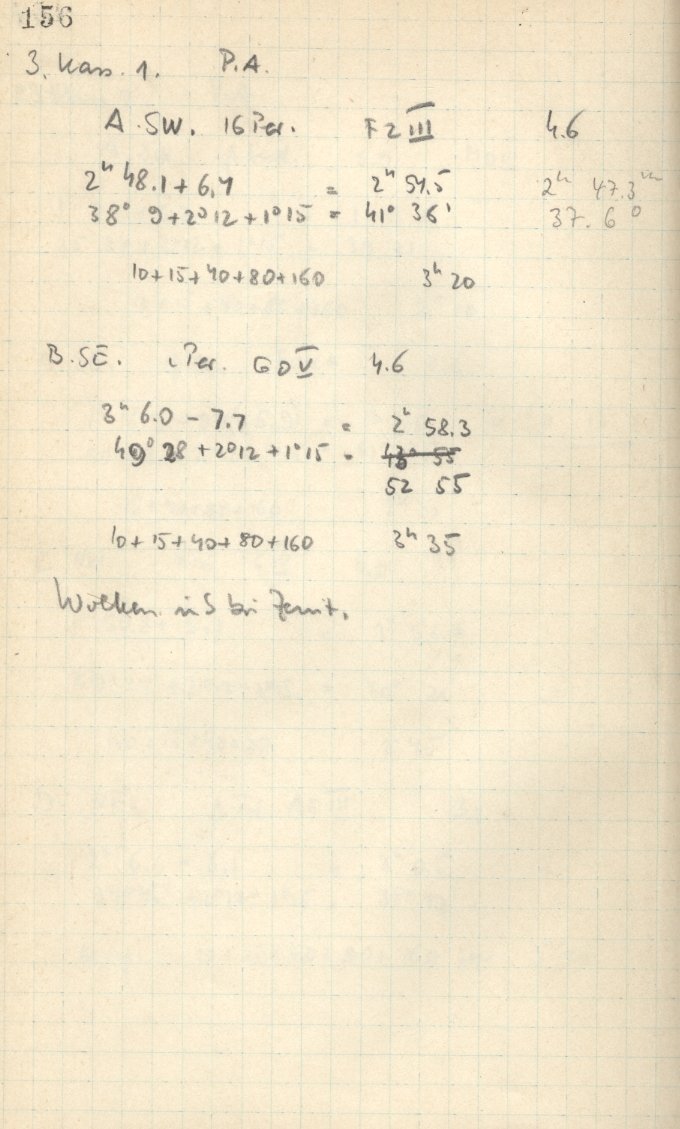 156
3. Kass. 1. P.A.
A. SW. 16 Per. F Z III 4.6
2h 48.1 + 6,4 = 2h 54.5 2h 47.3m
38° 9 + 2° 12 + 1° 15 = 41° 36' 37.6°
10+15+40+80+160 3h 20
B. SE. ι Per. G 0 V 4.6
3h 6.0 - 7.7 = 2h 58.3
49° 28 + 2° 12 + 1° 15 = 
52 55
10+15+40+80+160 3h 35
Wolken in S bis Zenit.